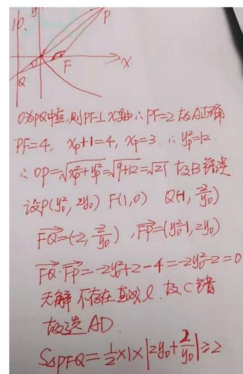 10. y P
F X
Q
O为PQ中点,则PF⊥X轴∴PF=2 故A正确
PF=4, xp+1=4, xp=3 ∴yp²=12
∴OP=√xp²+yp²=√9+12=√21 故B错误
设P(y0², 2y0) F(1,0) Q(-1, 2/y0)
FQ=(-2, 2/y0), FP=(y0²-1, 2y0)
FQ·FP=-2y0²+2-4=-2y0²-2=0
无解 不存在直线l. 故C错
故选AD.
S△PFQ=½×1×|2y0+2/y0|≥2